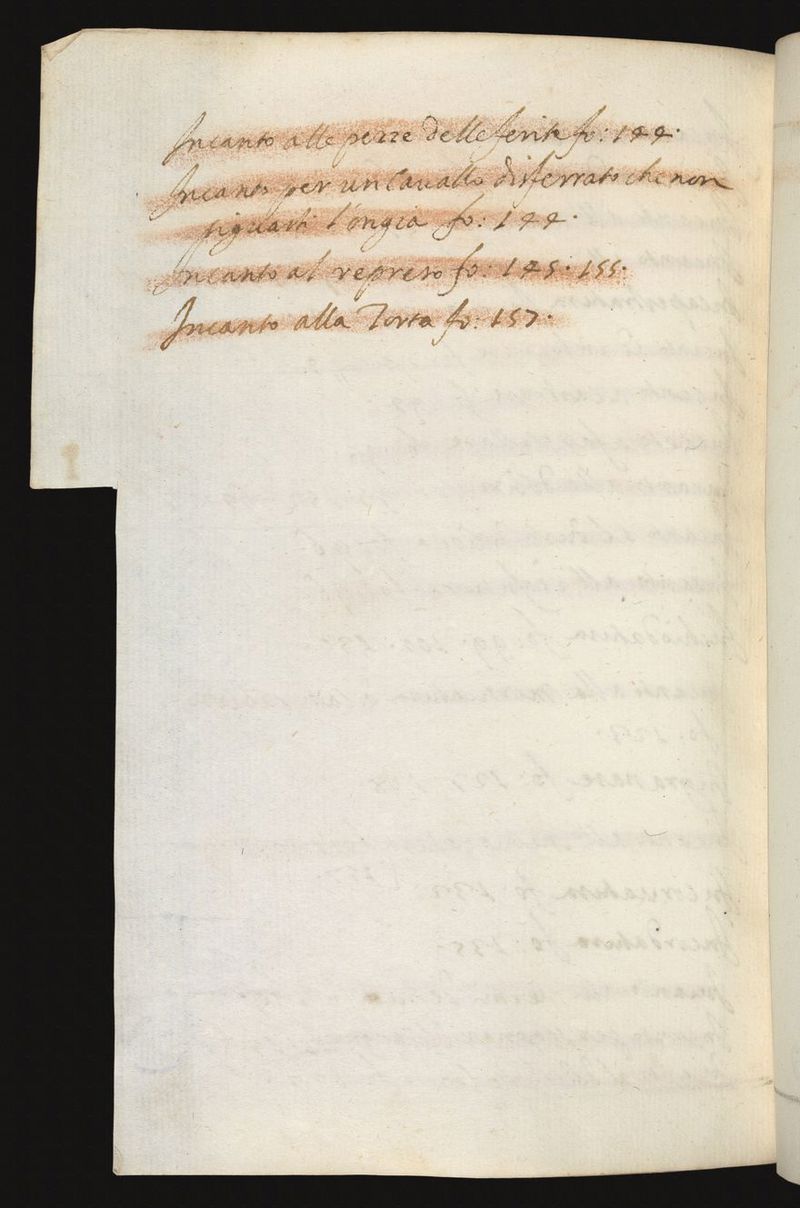 Incanto alle pezze delle ferite fo: 144.
Incanto per un Cauallo disferrato che non
si guasti l'ongia fo: 144.
Incanto al represo fo: 145. 155.
Incanto alla Torta fo: 157.